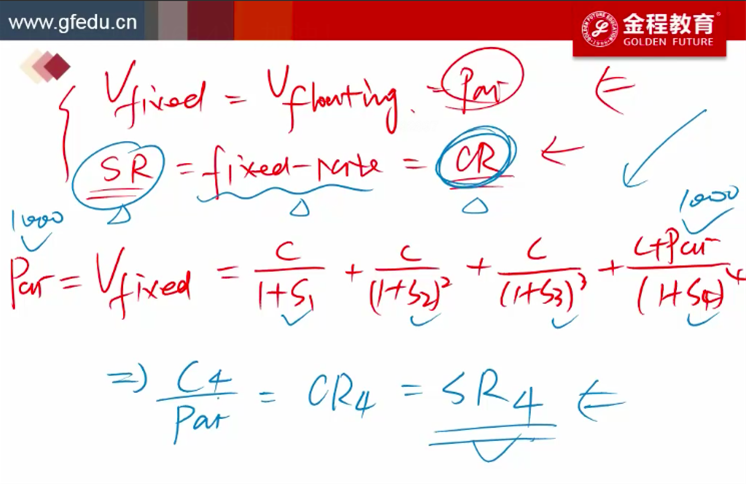 www.gfedu.cn
金程教育
GOLDEN FUTURE
V fixed = V floating. = Par ⇐
SR = fixed-rate = CR ←
1000
1000
Par = V fixed = C/(1+S₁) + C/(1+S₂)² + C/(1+S₃)³ + (C+Par)/(1+S₄)⁴
⇒ C₄/Par = CR₄ = SR₄ ⇐